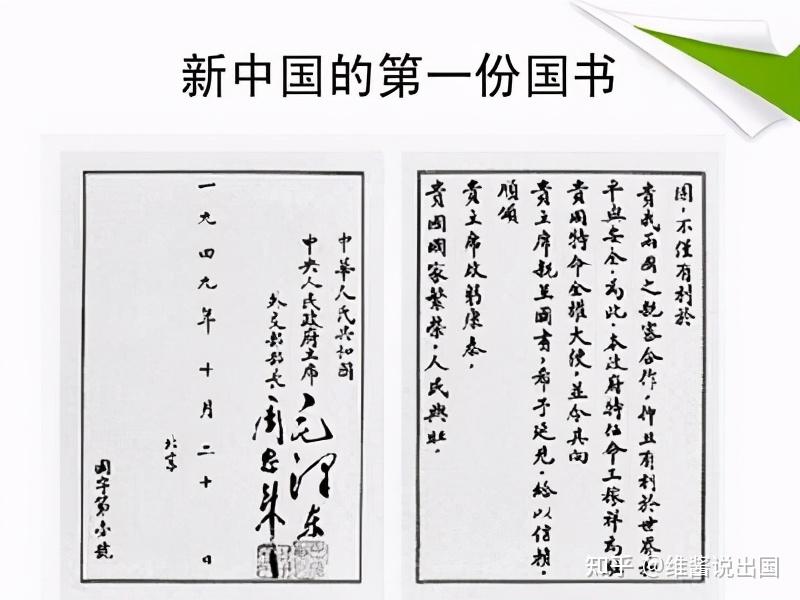 新中国的第一份国书
國,不僅有利於
貴我兩國之親密合作,抑且有利於世界和
平與安全.為此.本政府特任命王稼祥為駐
貴國特命全權大使,並令其向
貴主席親呈國書,希予延見,給以信
順頌
貴主席政躬康泰,
貴國國家繁榮,人民興旺.
中華人民共和國
中央人民政府主席 毛澤東
外交部部長 周恩來
一九四九年十月二十日
北京
國字第壹號
知乎 @维酱说出国